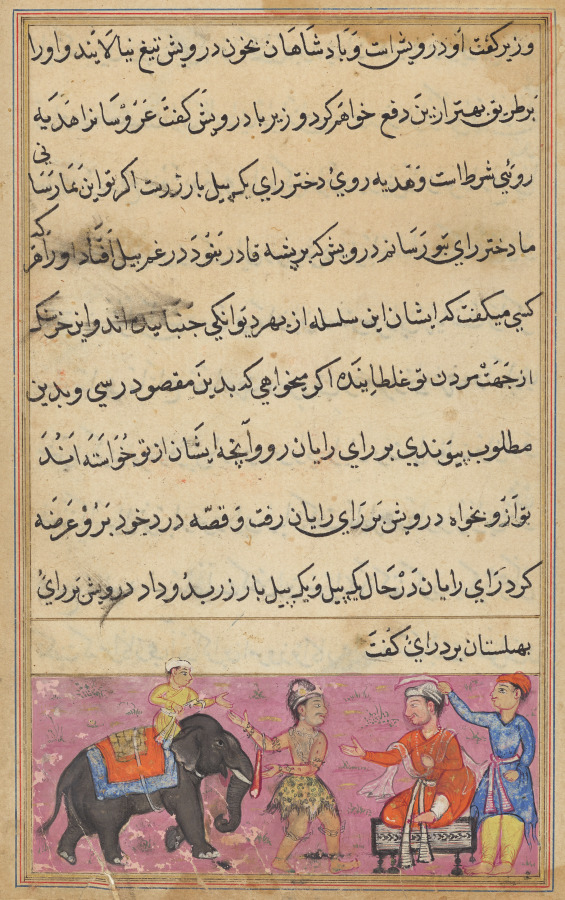 وزیر گفت او درویش است و پادشاهان بخون درویش تیغ نیالایند و او را
بر طریق بهتر ازین دفع خواهم کرد وزیر با درویش گفت عروسانرا هدیه
روئی شرط است و هدیه روئ دختر رای یک پیل بار زرست اگر تو این بما رسانی
ما دختر رای بتو رسانم درویش که بر پشه قادر نبود در غم پیل افتاد او را هر که
کسی میگفت که ایشان این سلسله از بهر دیوانگی جنبانیده اند و این خرسنک
از جهت مردن تو غلطانیده اگر میخواهی که بدین مقصود رسی و بدین
مطلوب پیوندی بر رای رایان رو و آنچه ایشان از تو خواسته اند
تو ازو بخواه درویش بر رای رایان رفت و قصه درد خود برو عرضه
کرد رای رایان در حال یک پیل و یک پیل بار زر بدو داد درویش بر رائ
بهلستان برد رائ گفت